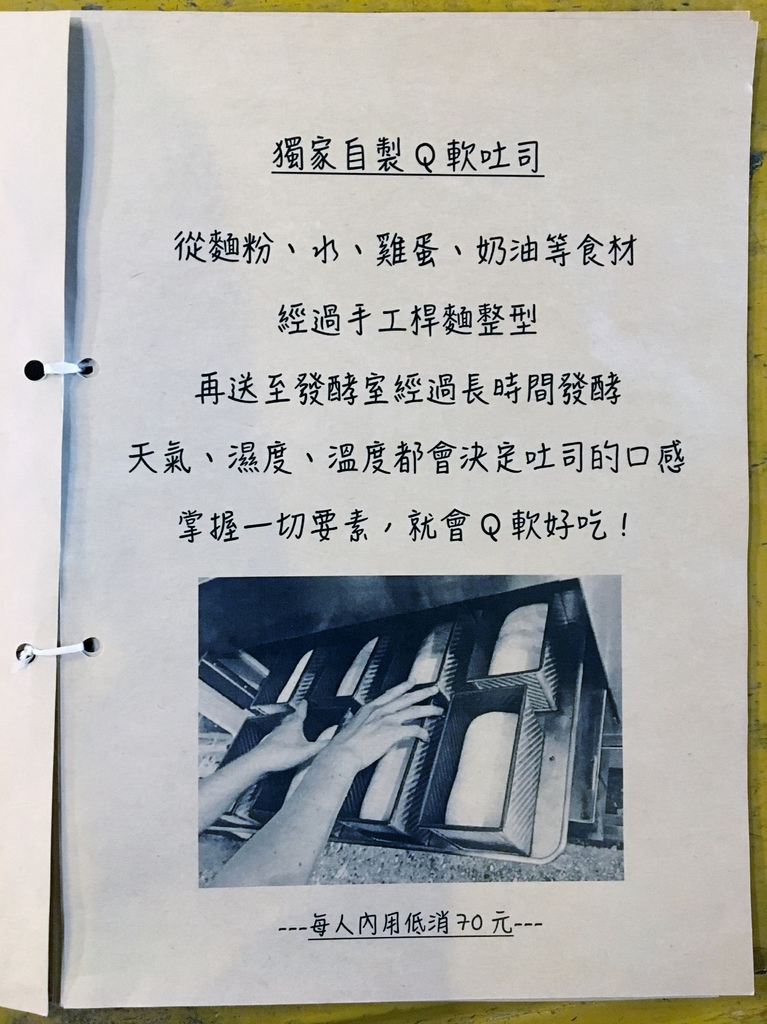 獨家自製Q軟吐司
從麵粉、水、雞蛋、奶油等食材
經過手工桿麵整型
再送至發酵室經過長時間發酵
天氣、濕度、溫度都會決定吐司的口感
掌握一切要素，就會Q軟好吃！
---每人內用低消70元---